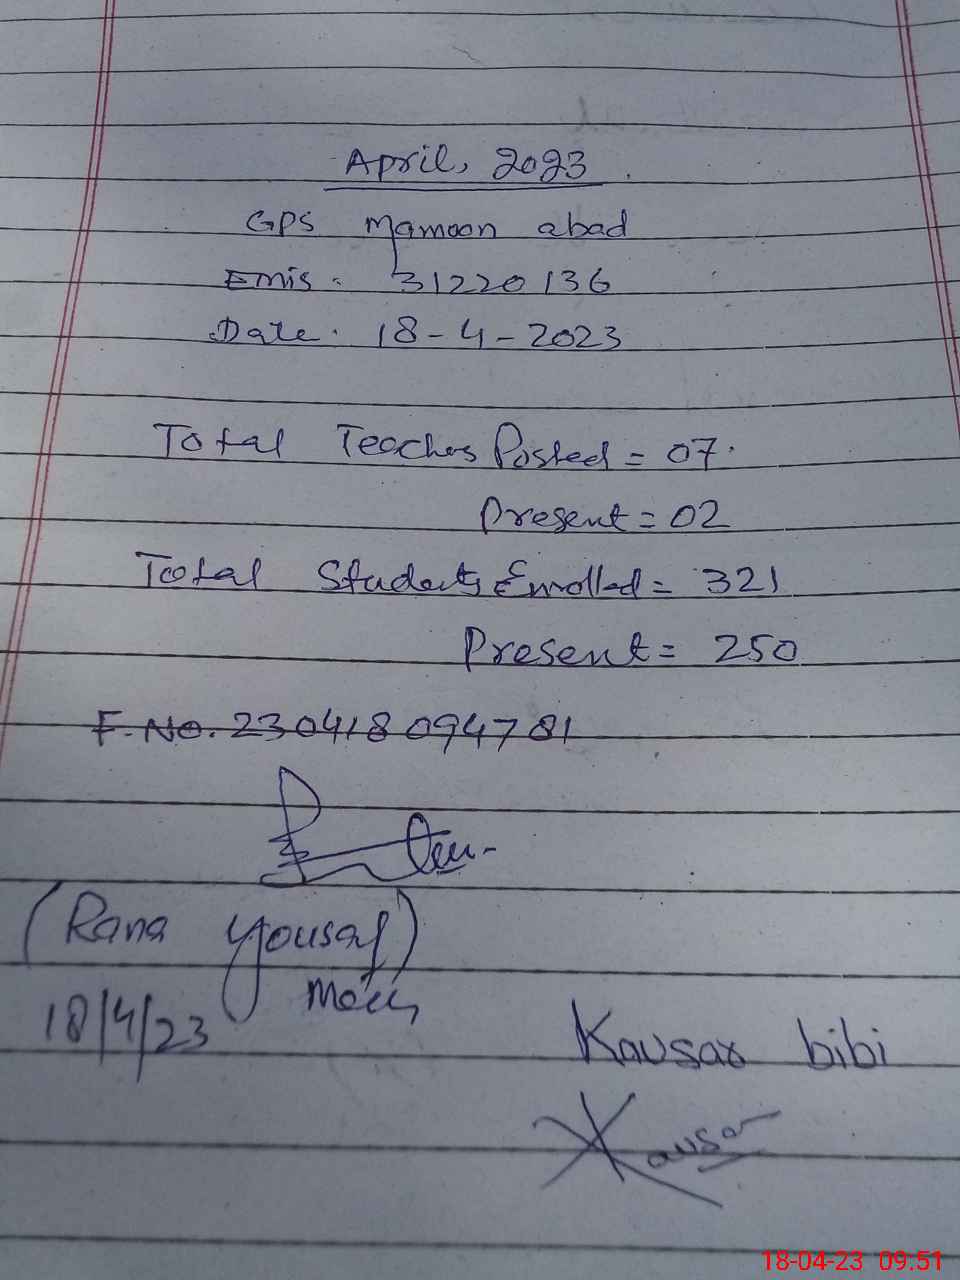 April, 2023
GPS Mamoon abad
Emis. 31220136
Date. 18-4-2023
Total Teachers Posted = 07.
Present = 02
Total Students Enrolled = 321
Present = 250
F.No. 230418094781
(Rana Yousaf)
18/4/23
Kausar bibi
Kausar
18-04-23 09.51